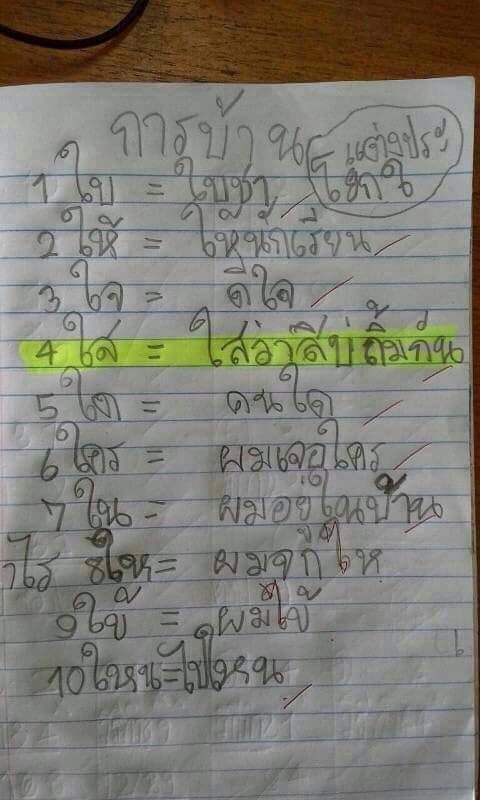 การบ้าน
แต่งประ
โยคใ
1 ใบ = ใบชา
2 ให้ = ให้นักเรียน
3 ใจ = ดีใจ
4 ใส = ใสว่าสิบ่ถิ้มกัน
5 ใด = คนใด
6 ใคร = ผมเจอใคร
7 ใน = ผมอยู่ในบ้าน
8 ให =
9 ใบ้ = ผมใบ้
10 ใหน = ไปใหน